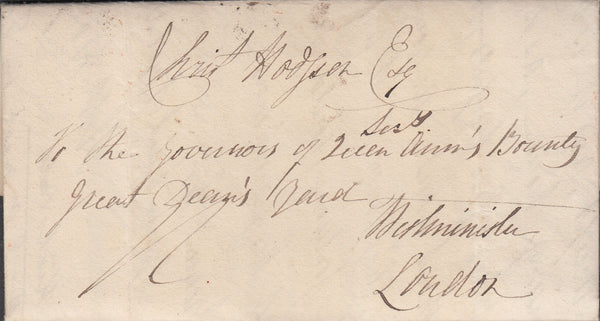 Christ Hodgson Esq
Secy
To the Governors of Queen Ann's Bounty
Great Dean's Yard
Westminster
London